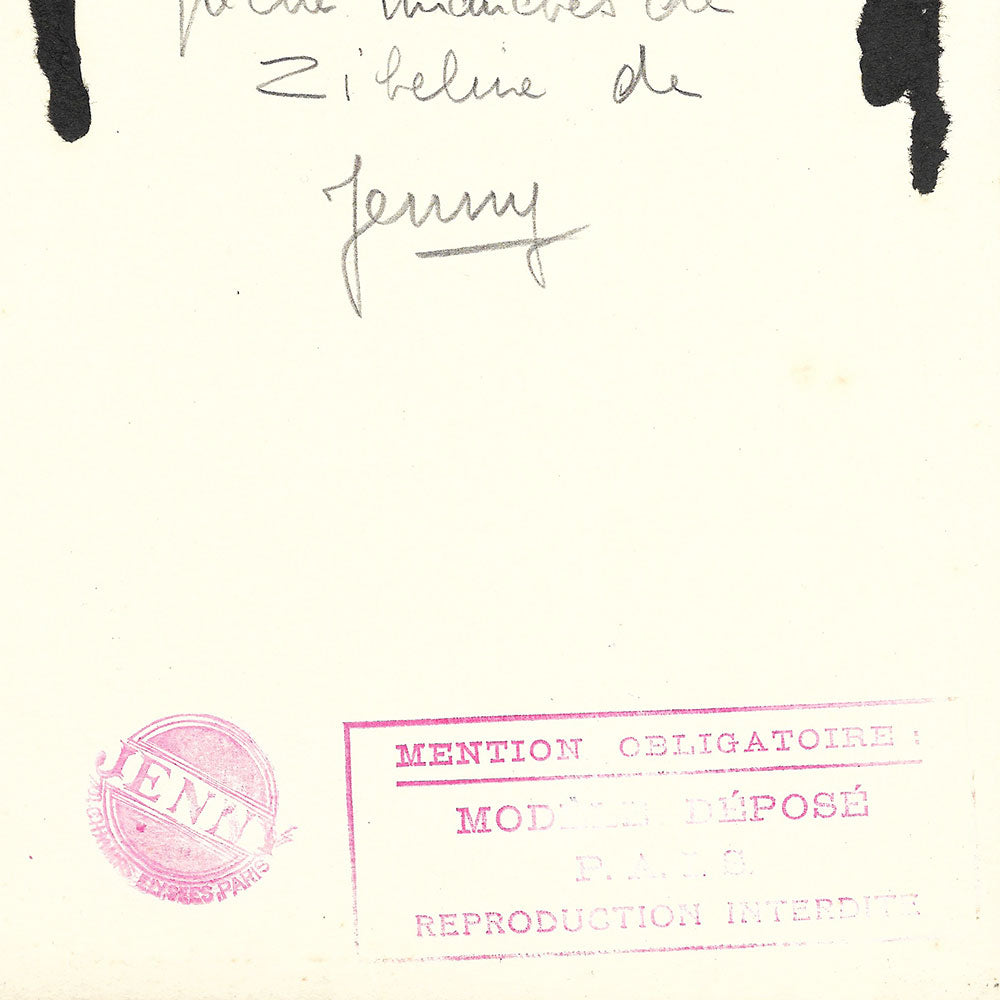 manches de
Zibeline de
Jenny
JENNY
CHAMPS ELYSEES. PARIS
MENTION OBLIGATOIRE :
MODÈLE DÉPOSÉ
P. A. I. S.
REPRODUCTION INTERDITE